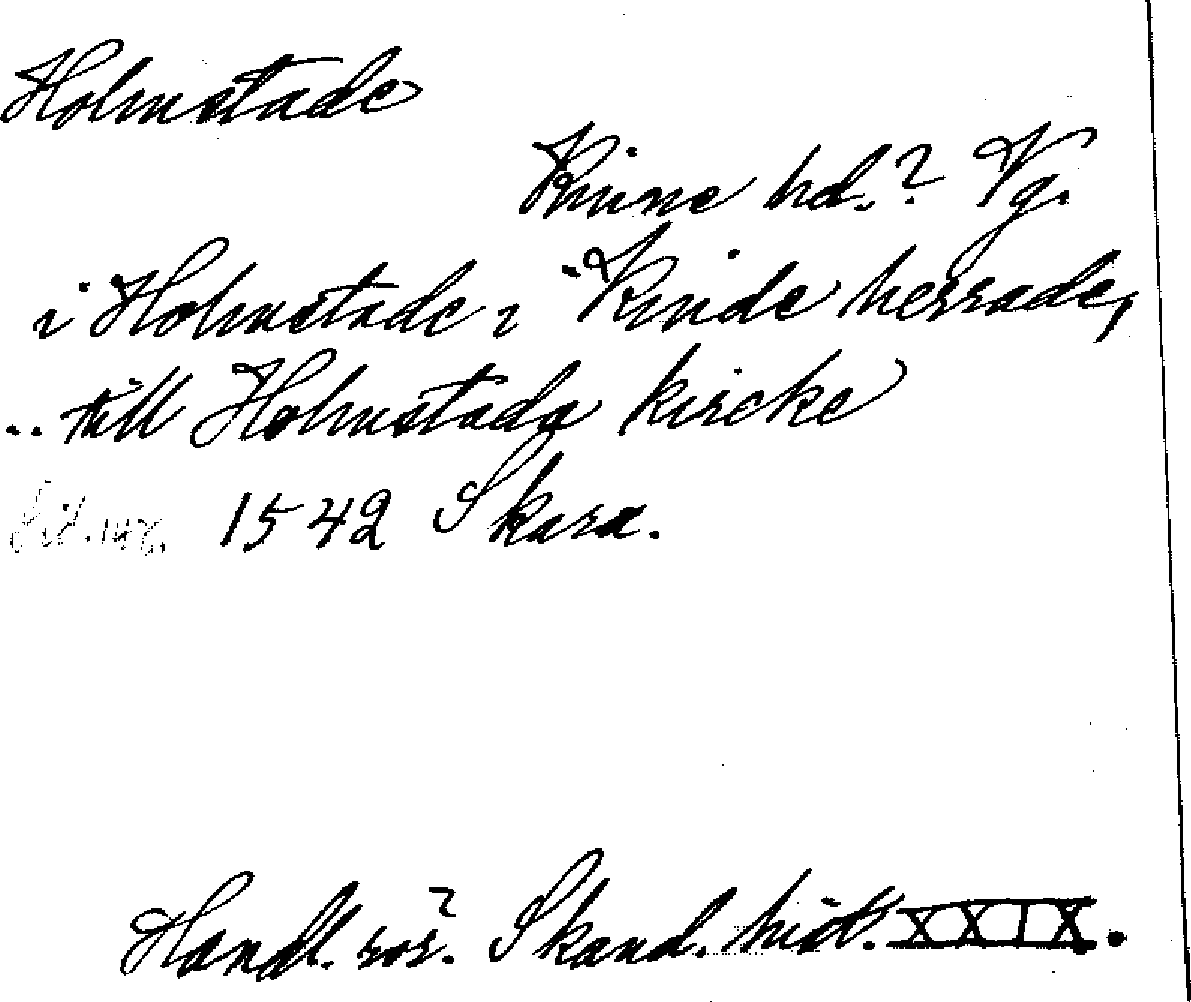 Holmstade
Kinne hd.? Vg.
i Holmstade i Kinde herrade,
.. till Holmstada kircke
Sid. 148. 1542 Skara.
Handl. rör. Skand. hist. XXIX.